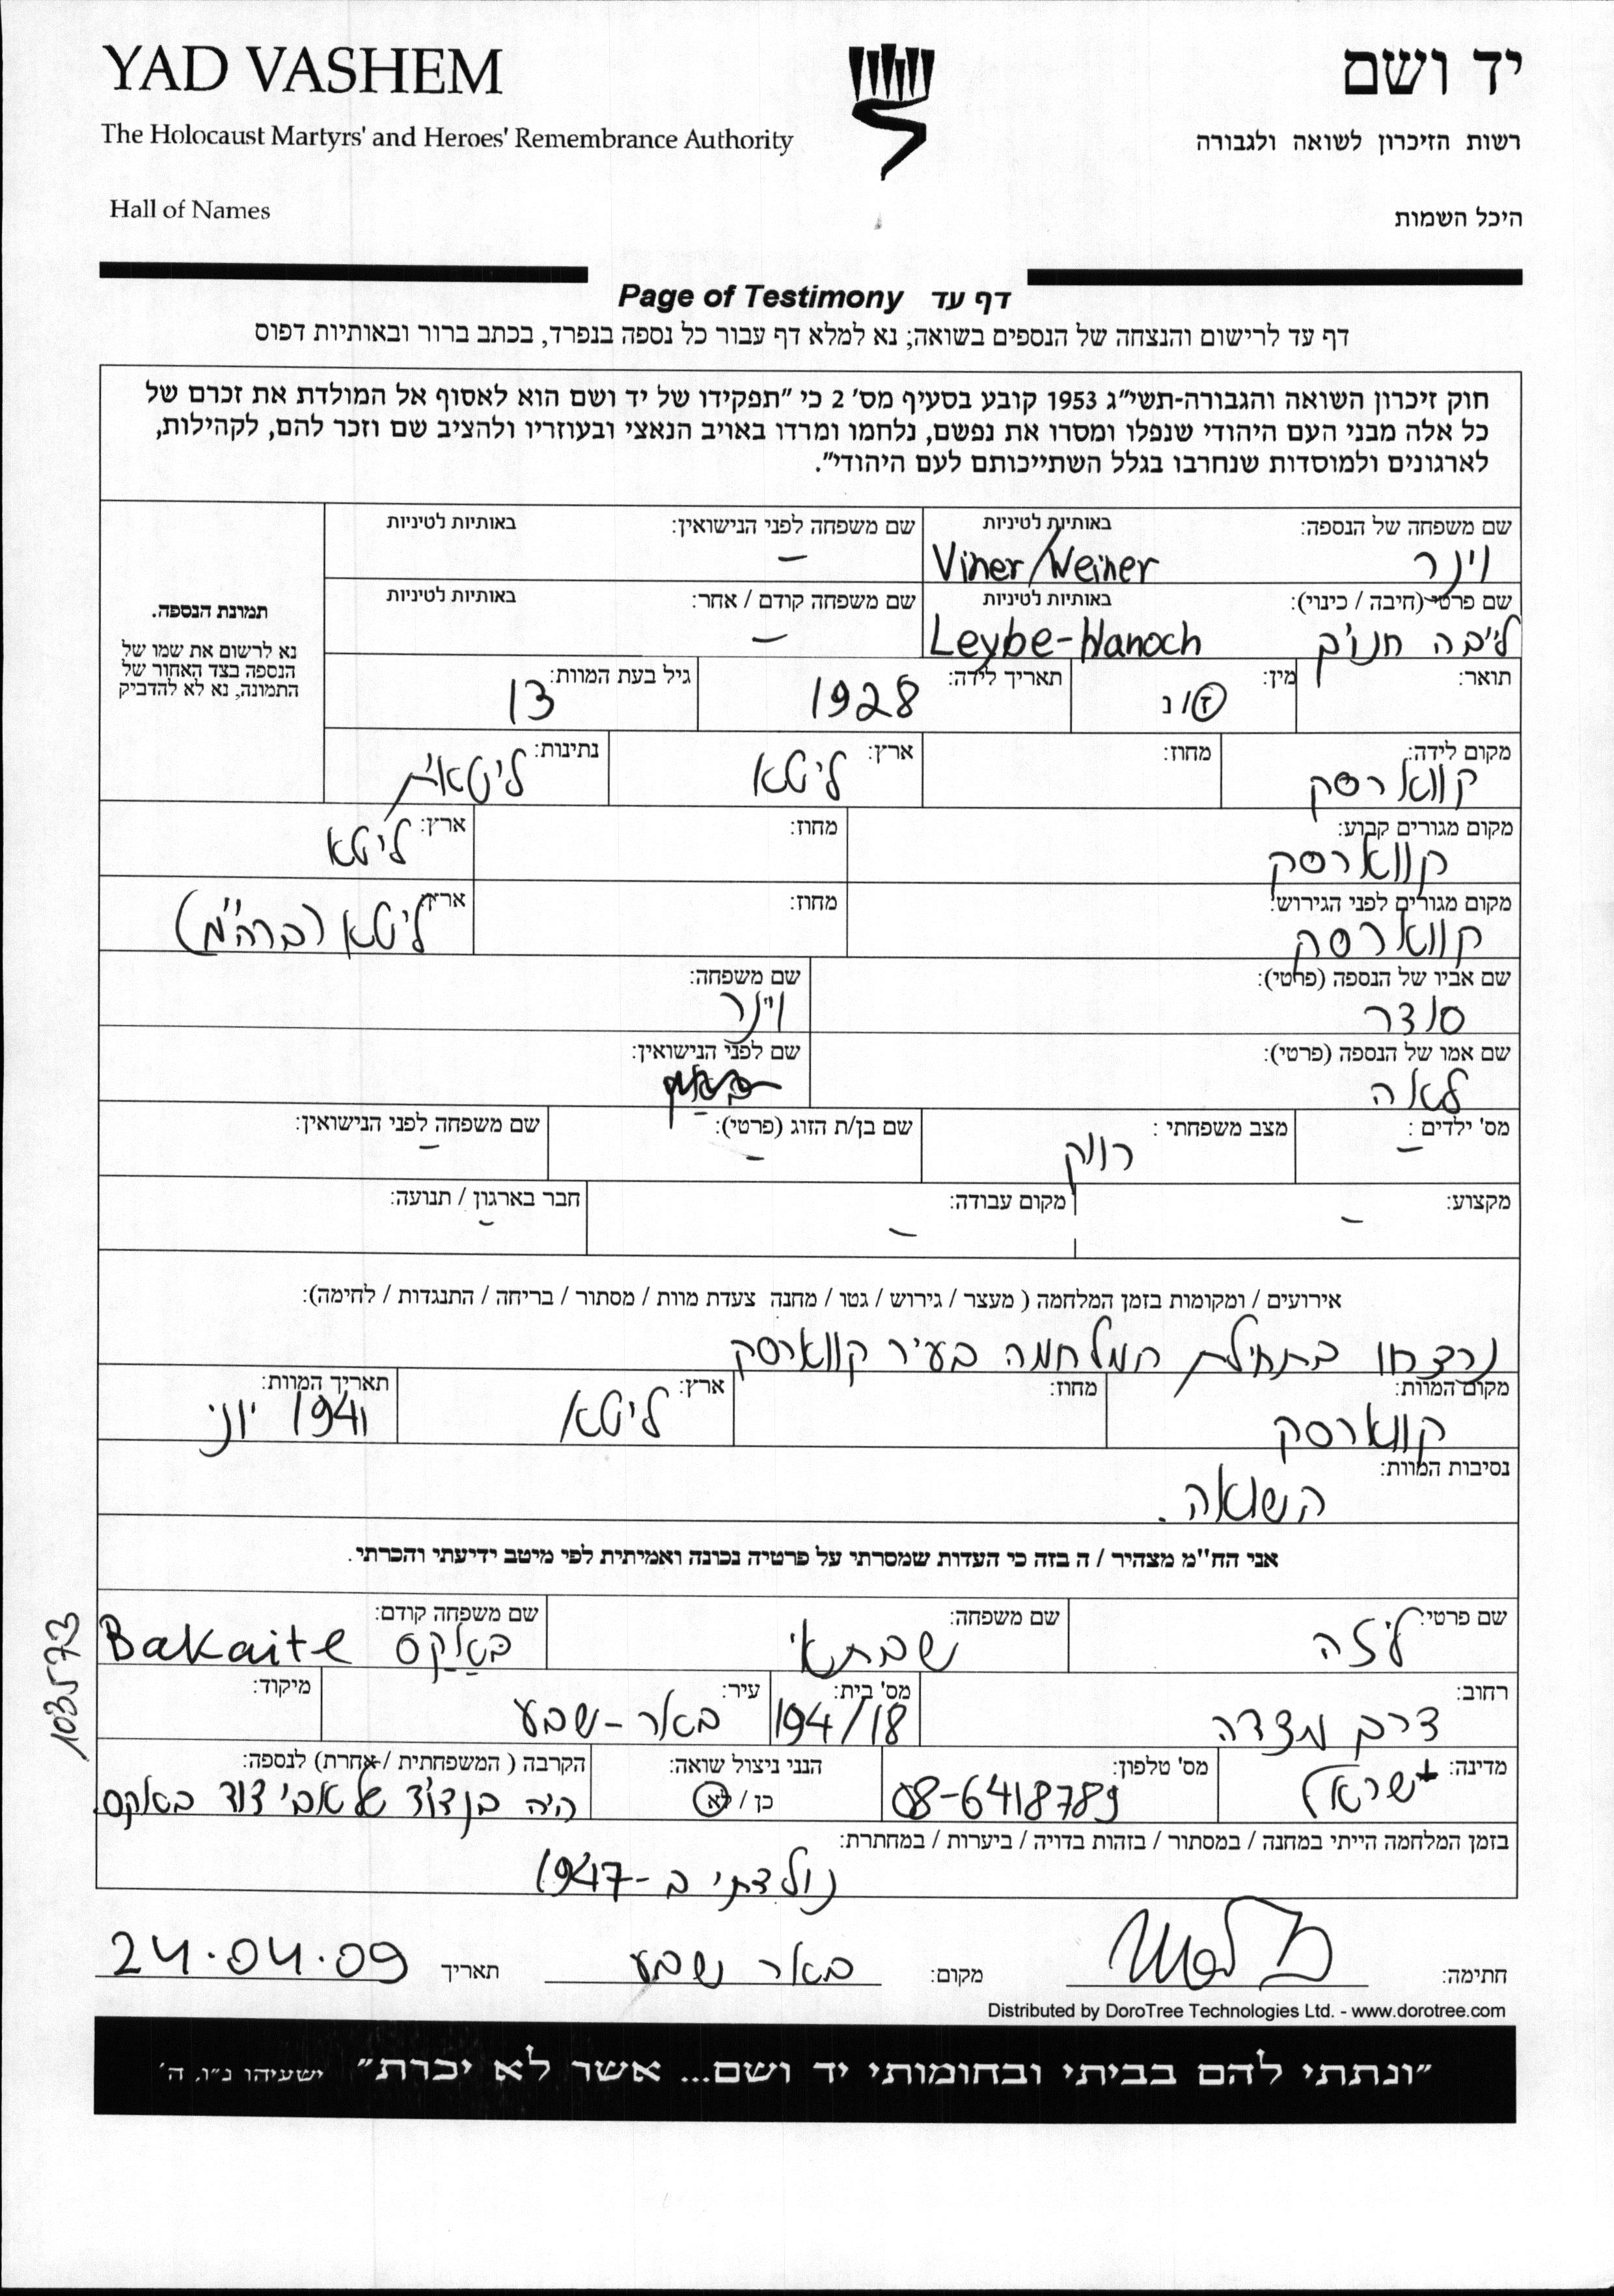 YAD VASHEM
יד ושם
The Holocaust Martyrs' and Heroes' Remembrance Authority
רשות הזיכרון לשואה ולגבורה
Hall of Names
היכל השמות
Page of Testimony דף עד
דף עד לרישום והנצחה של הנספים בשואה; נא למלא דף עבור כל נספה בנפרד, בכתב ברור ובאותיות דפוס
חוק זיכרון השואה והגבורה-תשי"ג 1953 קובע בסעיף מס' 2 כי "תפקידו של יד ושם הוא לאסוף אל המולדת את זכרם של
כל אלה מבני העם היהודי שנפלו ומסרו את נפשם, נלחמו ומרדו באויב הנאצי ובעוזריו ולהציב שם וזכר להם, לקהילות,
לארגונים ולמוסדות שנחרבו בגלל השתייכותם לעם היהודי".
שם משפחה של הנספה: באותיות לטיניות שם משפחה לפני הנישואין: באותיות לטיניות
וינר Viner/Weiner –
שם פרטי (חיבה / כינוי): באותיות לטיניות שם משפחה קודם / אחר: באותיות לטיניות
לייבה חנוך Leybe-Hanoch –
תמונת הנספה.
נא לרשום את שמו של
הנספה בצד האחור של
התמונה, נא לא להדביק
תואר: מין: ז / נ תאריך לידה: 1928 גיל בעת המוות: 13
מקום לידה: מחוז: ארץ: נתינות:
קווארסק ליטא ליטאית
מקום מגורים קבוע: מחוז: ארץ:
קווארסק ליטא
מקום מגורים לפני הגירוש: מחוז: ארץ:
קווארסק ליטא (ברה"מ)
שם אביו של הנספה (פרטי): שם משפחה:
סנדר וינר
שם אמו של הנספה (פרטי): שם לפני הנישואין:
לאה
מס' ילדים: – מצב משפחתי: רווק שם בן/ת הזוג (פרטי): – שם משפחה לפני הנישואין: –
מקצוע: – מקום עבודה: – חבר בארגון / תנועה: –
אירועים / ומקומות בזמן המלחמה ( מעצר / גירוש / גטו / מחנה צעדת מוות / מסתור / בריחה / התנגדות / לחימה):
נרצחו בתחילת המלחמה בעיר קווארסק
מקום המוות: מחוז: ארץ: תאריך המוות:
קווארסק ליטא יוני 1941
נסיבות המוות:
השואה.
אני הח"מ מצהיר / ה בזה כי העדות שמסרתי על פרטיה נכונה ואמיתית לפי מיטב ידיעתי והכרתי.
שם פרטי: שם משפחה: שם משפחה קודם:
ליזה שבתאי באקס Bakaite
רחוב: מס' בית: עיר: מיקוד:
דרך מצדה 194/18 באר-שבע
מדינה: מס' טלפון: הנני ניצול שואה: הקרבה ( המשפחתית / אחרת) לנספה:
ישראל 08-6418789 כן / לא היה בן דוד של אבי דוד באקס
בזמן המלחמה הייתי במחנה / במסתור / בזהות בדויה / ביערות / במחתרת:
נולדתי ב-1947
חתימה: מקום: באר שבע תאריך 24.04.09
Distributed by DoroTree Technologies Ltd. - www.dorotree.com
"ונתתי להם בביתי ובחומותי יד ושם... אשר לא יכרת" ישעיהו נ"ו, ה'
103573